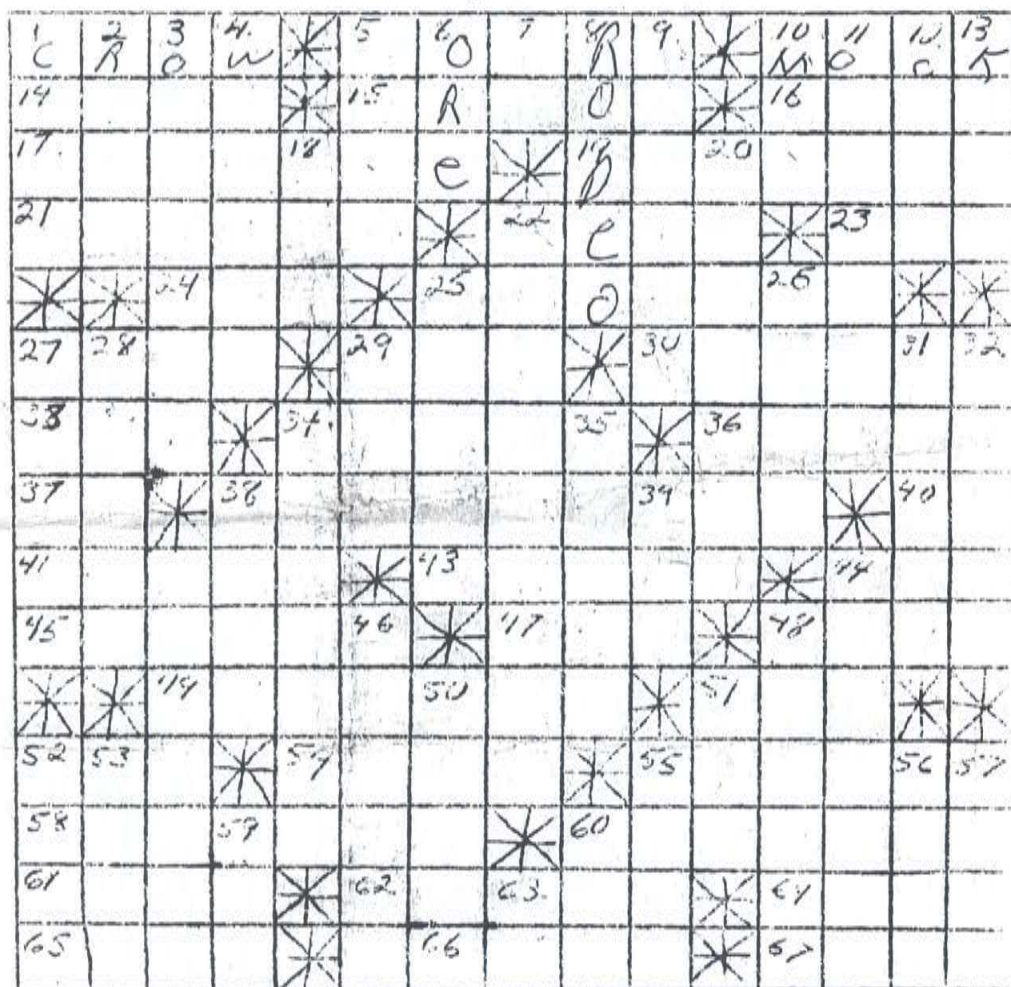 1 C 2 R 3 O 4 W 5 6 O 7 8 R 9 10 M 11 O 12 13 K
14 15 R O 16
17 18 e 19 D 20
21 22 e 23
24 25 O 26
27 28 29 30 31 32
33 34 35 36
37 38 39 40
41 43 44
45 46 47 48
49 50 51
52 53 54 55 56 57
58 59 60
61 62 63 64
65 66 67